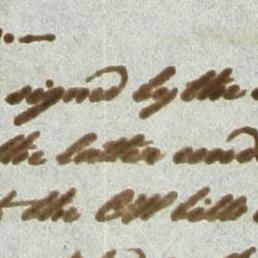 signed by the
the latter
the Old bills